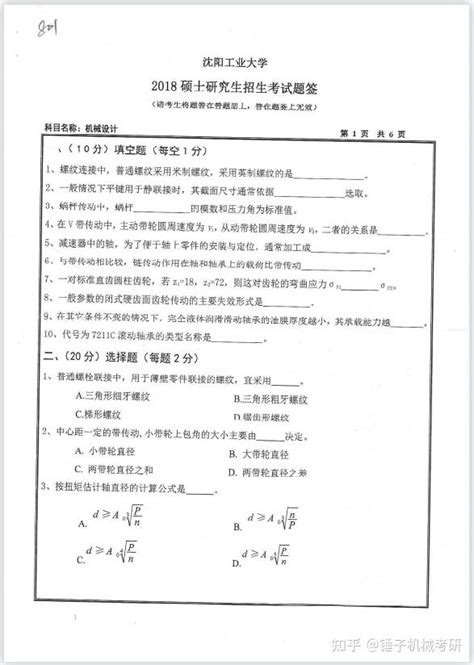 801
沈阳工业大学
2018 硕士研究生招生考试题签
（请考生将题答在答题册上，答在题签上无效）
科目名称：机械设计 第 1 页 共 6 页
、（10 分）填空题（每空 1 分）
1、螺纹连接中，普通螺纹采用米制螺纹，采用英制螺纹的是____________。
2、一般情况下平键用于静联接时，其截面尺寸通常依据____________选取。
3、蜗杆传动中，蜗杆____________的模数和压力角为标准值。
4、在 V 带传动中，主动带轮圆周速度为 v₁，从动带轮圆周速度为 v₂，二者的关系是______。
5、减速器中的轴，为了便于轴上零件的安装与定位，通常加工成____________。
6、与带传动相比较，链传动作用在轴和轴承上的载荷比带传动____________。
7、一对标准直齿圆柱齿轮，若 z₁=18，z₂=72，则这对齿轮的弯曲应力 σF1______σF2。
8、一般参数的闭式硬齿面齿轮传动的主要失效形式是__________。
9、在其它条件不变的情况下，完全液体润滑滑动轴承的油膜厚度越小，其承载能力越____。
10、代号为 7211C 滚动轴承的类型名称是__________。
二、（20 分）选择题（每题 2 分）
1、普通螺栓联接中，用于薄壁零件联接的螺纹，宜采用____。
A.三角形细牙螺纹 B.三角形粗牙螺纹
C.梯形螺纹 D.锯齿形螺纹
2、中心距一定的带传动,小带轮上包角的大小主要由______决定。
A. 小带轮直径 B. 大带轮直径
C. 两带轮直径之和 D. 两带轮直径之差
3、按扭矩估计轴直径的计算公式是______。
A. d ≥ A₀∛(P/n) B. d ≥ A₀∛(n/P)
C. d ≥ A₀∜(P/n) D. d ≥ A₀∜(n/P)
知乎 @锤子机械考研